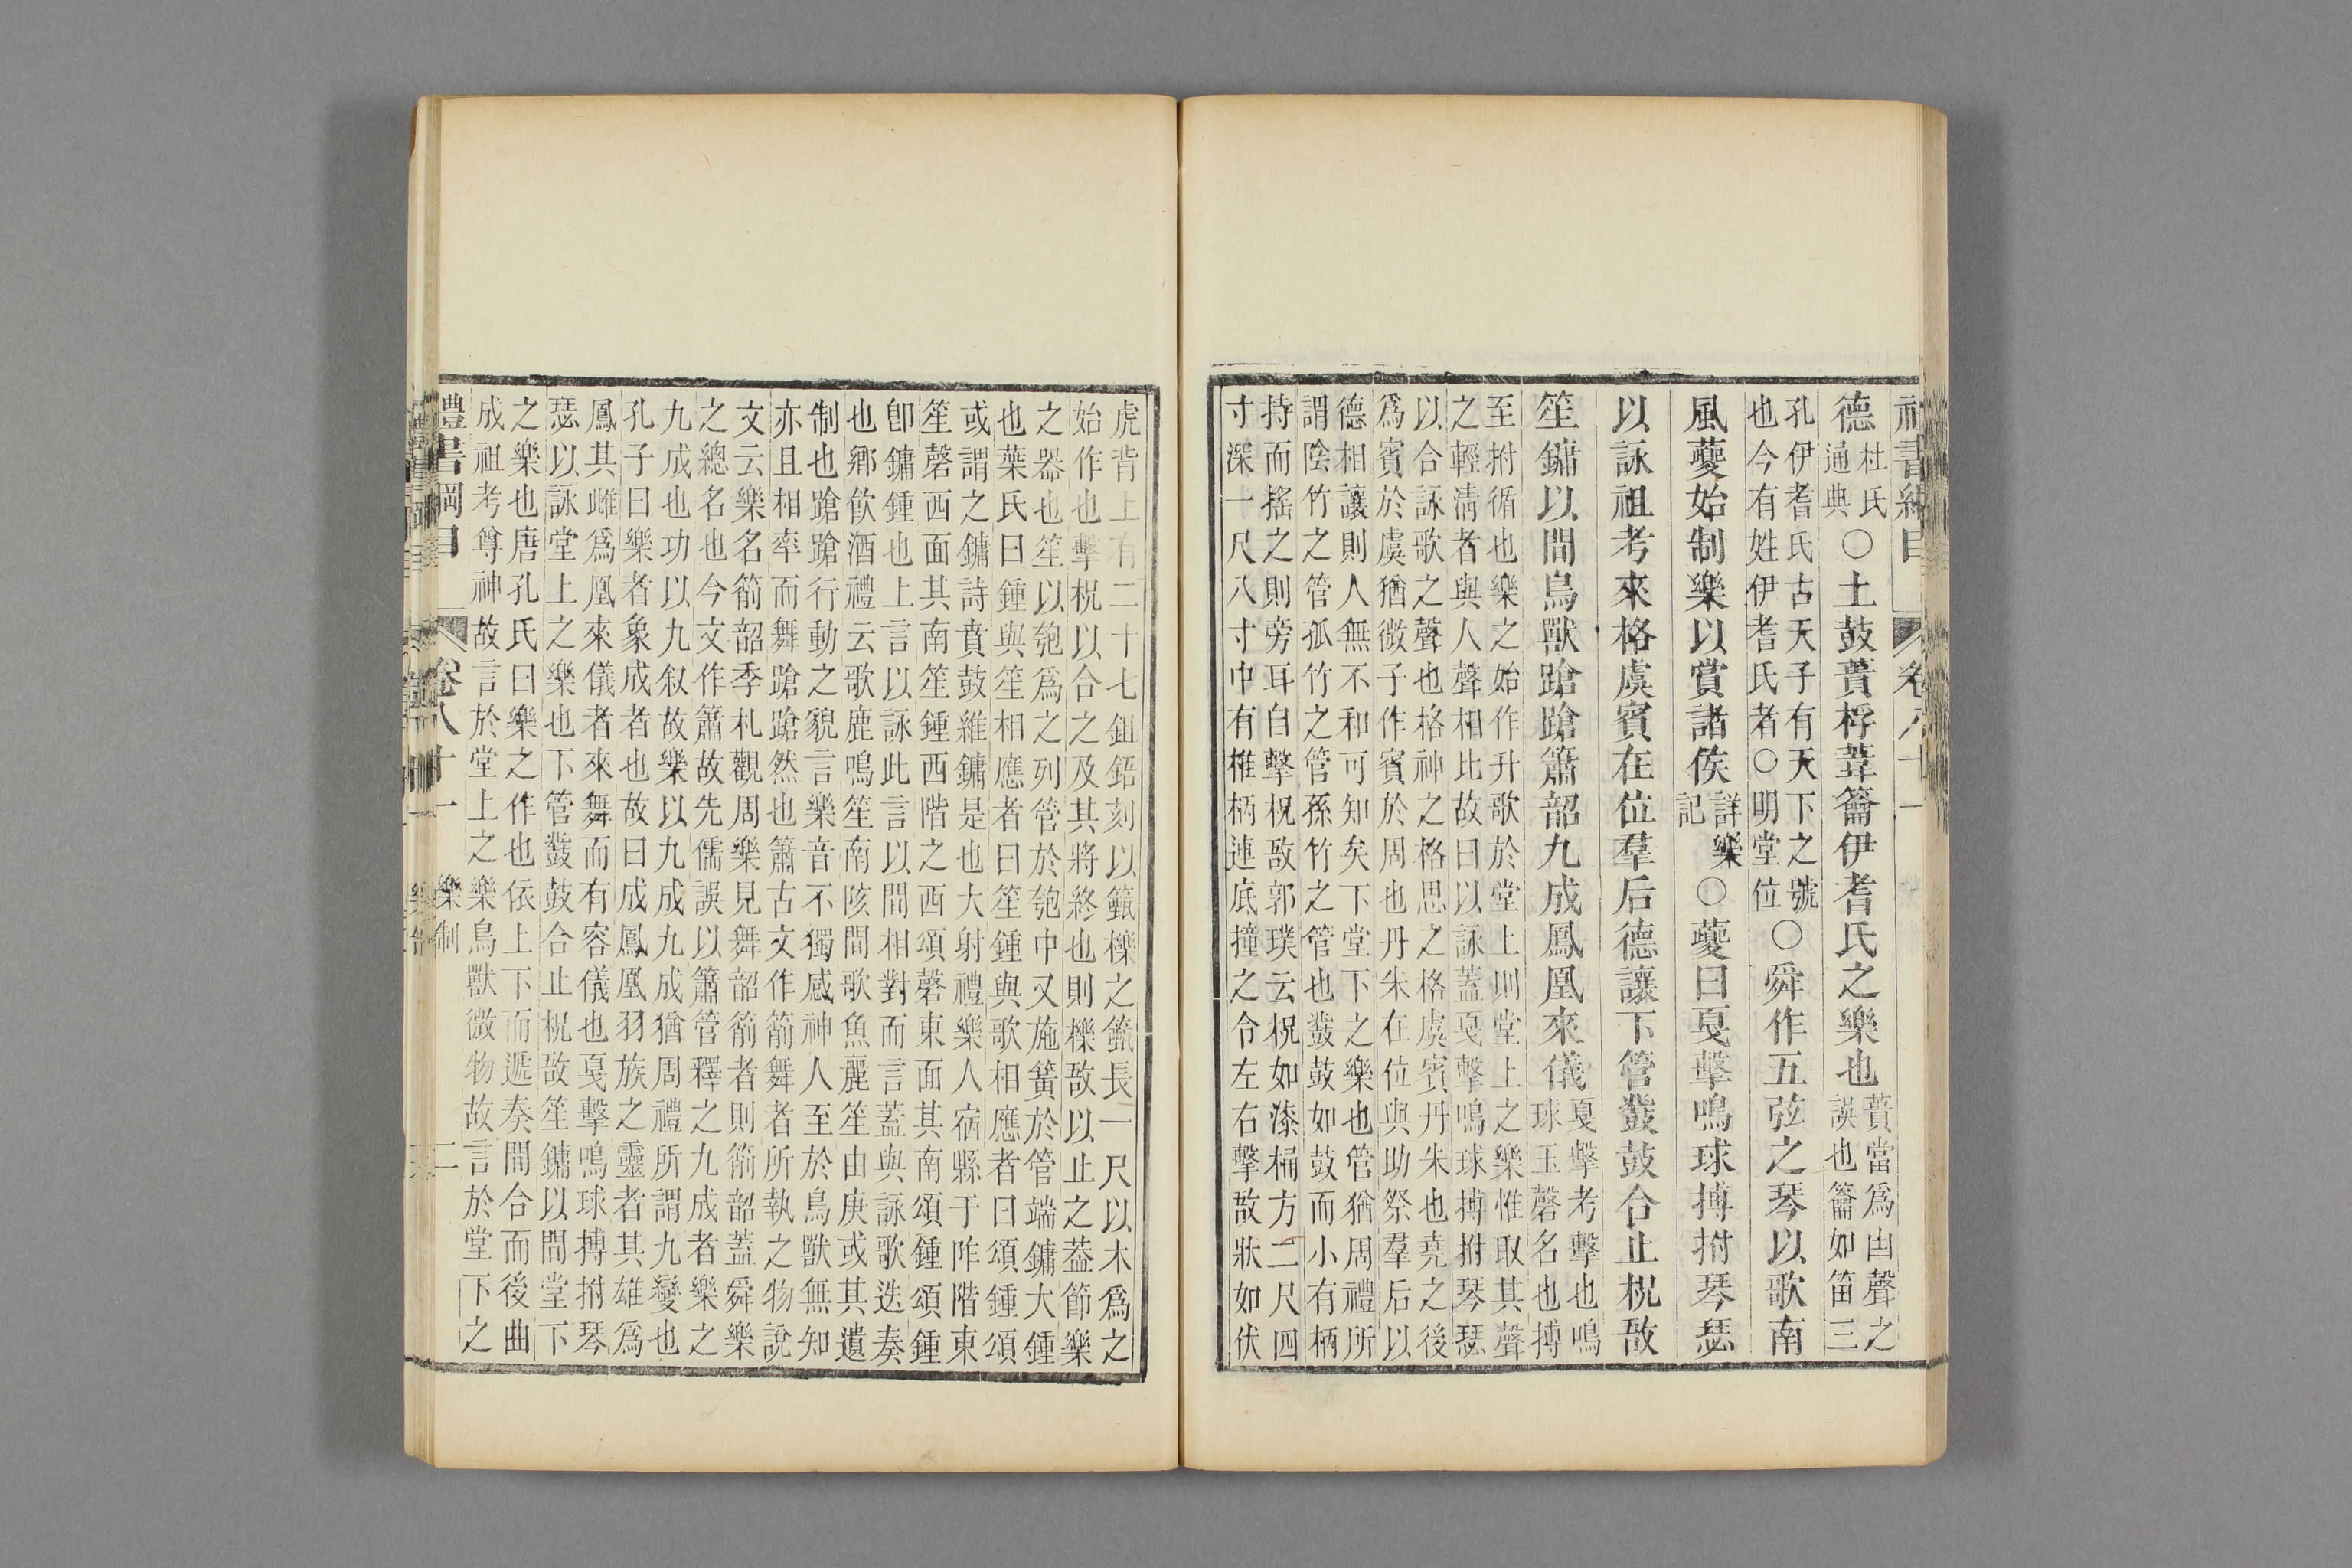 禮書綱目 卷八十一
德杜氏通典○土鼓蕢桴葦籥伊耆氏之樂也蕢當爲凷聲之誤也籥如笛三
孔伊耆氏古天子有天下之號也今有姓伊耆氏者○明堂位○舜作五弦之琴以歌南
風夔始制樂以賞諸侯詳樂記○夔曰戛擊鳴球搏拊琴瑟
以詠祖考來格虞賓在位羣后德讓下管鼗鼓合止柷敔
笙鏞以間鳥獸蹌蹌簫韶九成鳳凰來儀戛擊考擊也鳴球玉磬名也搏
至拊循也樂之始作升歌於堂上則堂上之樂惟取其聲
之輕清者與人聲相比故曰以詠蓋戛擊鳴球搏拊琴瑟
以合詠歌之聲也格神之格思之格虞賓丹朱也堯之後
爲賓於虞猶微子作賓於周也丹朱在位與助祭羣后以
德相讓則人無不和可知矣下堂下之樂也管猶周禮所
謂陰竹之管孤竹之管孫竹之管也鼗鼓如鼓而小有柄
持而搖之則旁耳自擊柷敔郭璞云柷如漆桶方二尺四
寸深一尺八寸中有椎柄連底撞之令左右擊敔狀如伏
虎背上有二十七鉏鋙刻以籈櫟之籈長一尺以木爲之
始作也擊柷以合之及其將終也則櫟敔以止之蓋節樂
之器也笙以匏爲之列管於匏中又施簧於管端鏞大鍾
也葉氏曰鍾與笙相應者曰笙鍾與歌相應者曰頌鍾頌
或謂之鏞詩賁鼓維鏞是也大射禮樂人宿縣于阼階東
笙磬西面其南笙鍾西階之西頌磬東面其南頌鍾頌鍾
卽鏞鍾也上言以詠此言以間相對而言蓋與詠歌迭奏
也鄕飮酒禮云歌鹿鳴笙南陔間歌魚麗笙由庚或其遺
制也蹌蹌行動之貌言樂音不獨感神人至於鳥獸無知
亦且相率而舞蹌蹌然也簫古文作箾舞者所執之物說
文云樂名箾韶季札觀周樂見舞韶箾者則箾韶蓋舜樂
之總名也今文作簫故先儒誤以簫管釋之九成者樂之
九成也功以九叙故樂以九成九成猶周禮所謂九變也
孔子曰樂者象成者也故曰成鳳凰羽族之靈者其雄爲
鳳其雌爲凰來儀者來舞而有容儀也戛擊鳴球搏拊琴
瑟以詠堂上之樂也下管鼗鼓合止柷敔笙鏞以間堂下
之樂也唐孔氏曰樂之作也依上下而遞奏間合而後曲
成祖考尊神故言於堂上之樂鳥獸微物故言於堂下之
禮書綱目 卷八十一 樂制 二